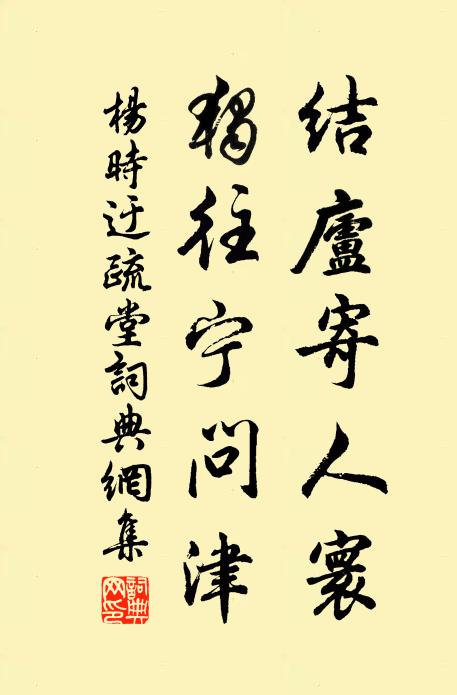 結廬寄人寰
獨往宁問津
楊時迂疏堂詞典網集
詞典网印